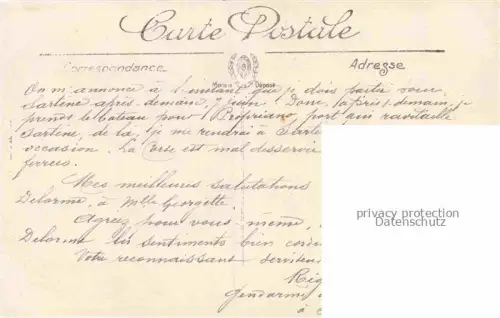 Carte Postale
Correspondance
Adresse
Marque Déposée
On m'annonce à l'instant que je dois partir pour
Sartène après-demain, 7 juin. Donc, après-demain, je
prends le bateau pour Propriano, port qui ravitaille
Sartène, de là, je me rendrai à Sartè
occasion. La Corse est mal desservie
ferrées.
Mes meilleures salutations
Delorme, à Mlle Georgette.
Agréez pour vous même,
Delorme les sentiments bien cordi
Votre reconnaissant serviteur
Rig
Gendarme
à
privacy protection
Datenschutz